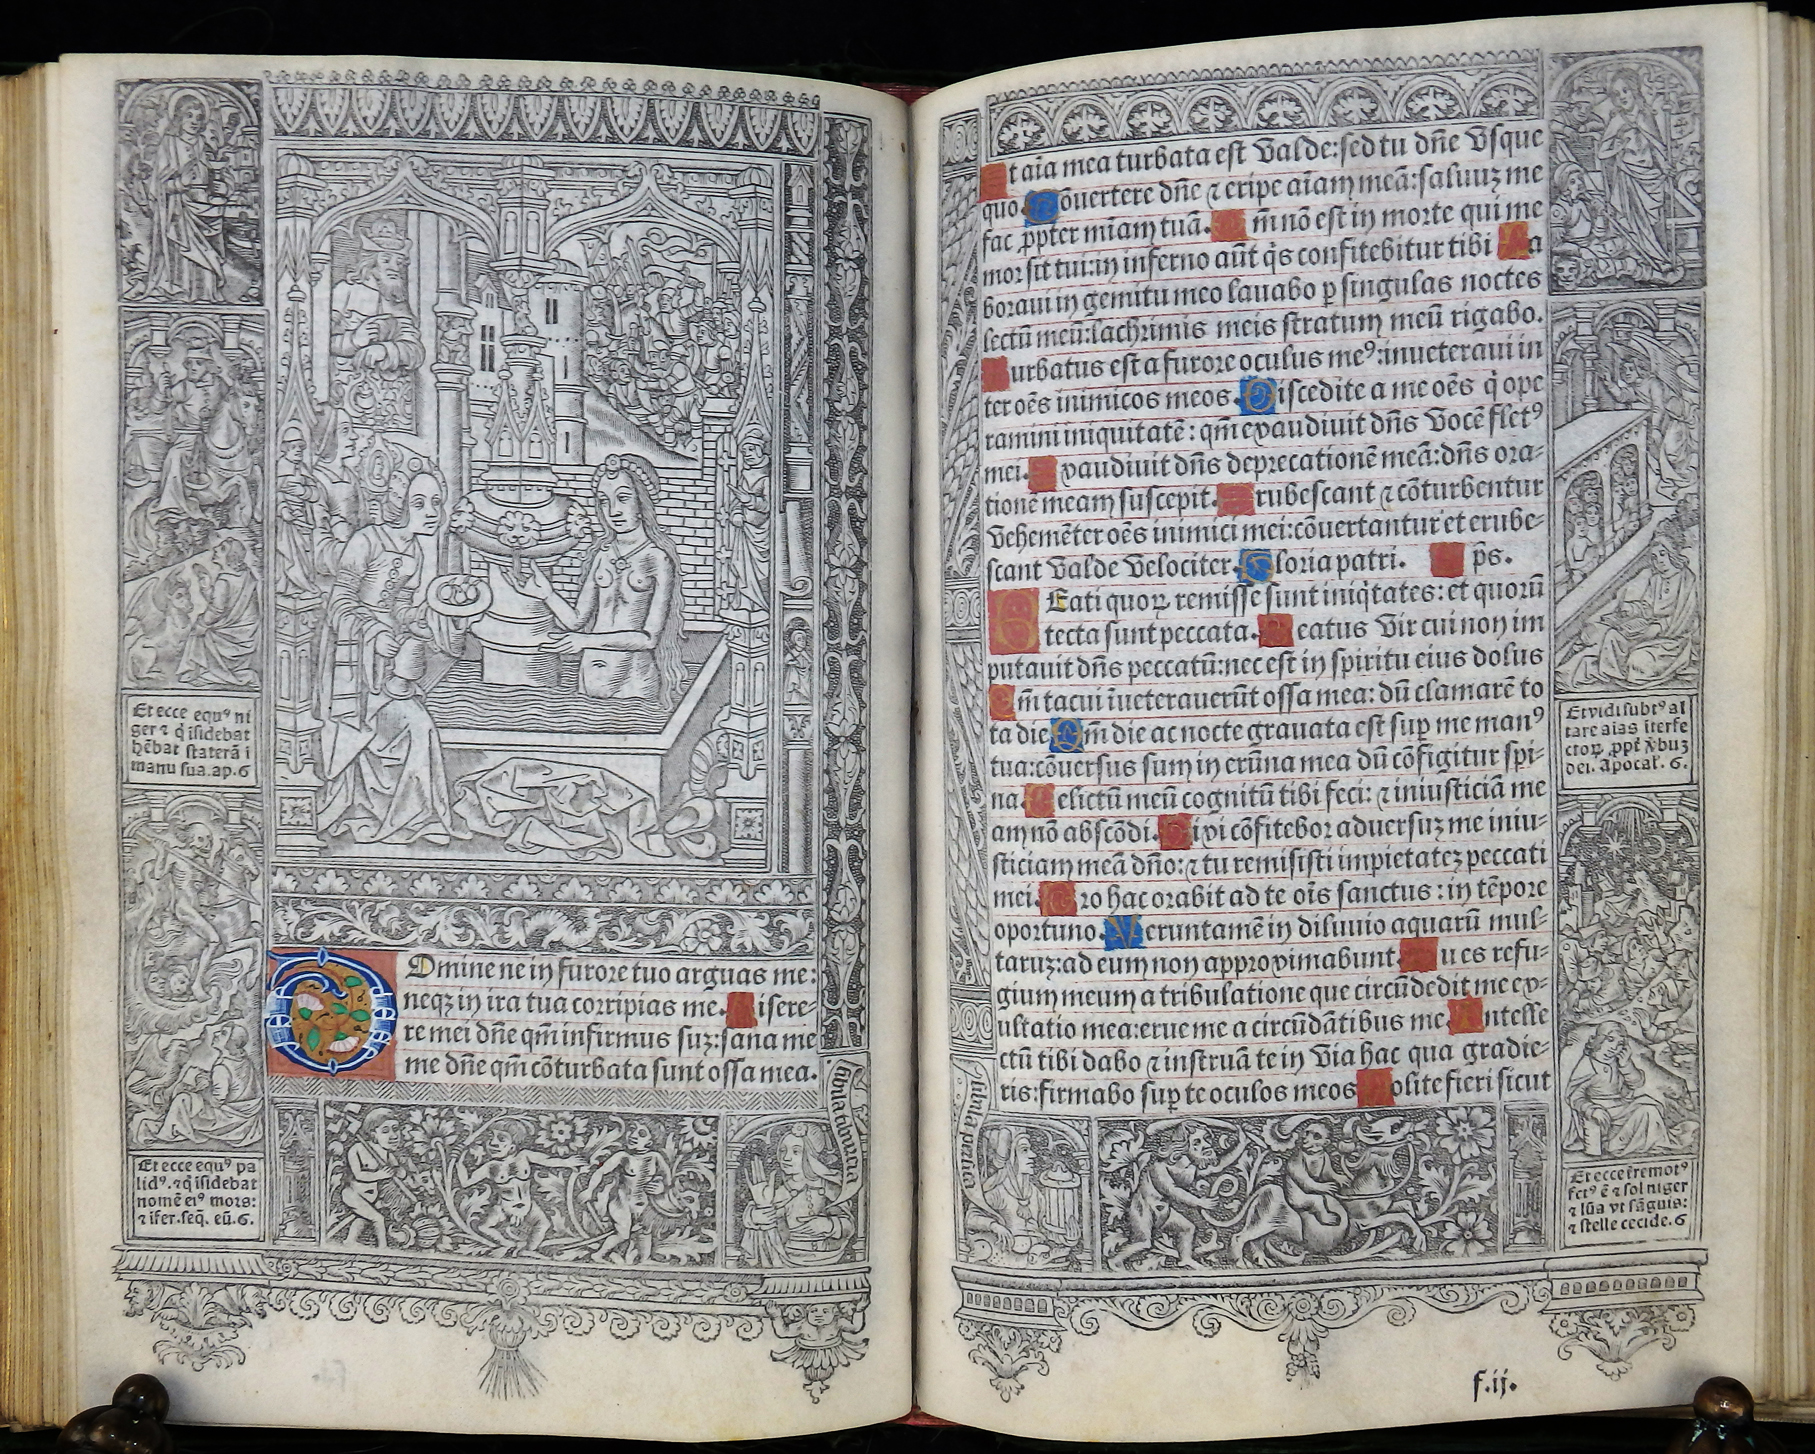 Et ecce equꝰ ni
ger ⁊ q̇ isidebat
hēbat staterā i
manu sua. ap. 6
Et ecce equꝰ pa
lidꝰ. ⁊ q̇ isidebat
nomē eiꝰ mors:
⁊ ifer. seq̄. eū. 6.
DOmine ne in furore tuo arguas me:
neqz in ira tua corripias me. Misere-
re mei dn̄e qm̄ infirmus suz: sana me
me dn̄e qm̄ cōturbata sunt ossa mea.
Et aīa mea turbata est valde: sed tu dn̄e vsque
quo. Cōuertere dn̄e ⁊ eripe aīam meā: saluuz me
fac ꝓpter mīam tuā. Qm̄ nō est in morte qui me
mor sit tui: in inferno aūt q̇s confitebitur tibi La
boraui in gemitu meo lauabo ꝑ singulas noctes
lectū meū: lachrimis meis stratum meū rigabo.
Turbatus est a furore oculus meꝰ: inueteraui in
ter oēs inimicos meos. Discedite a me oēs q̇ ope
ramini iniquitatē: qm̄ exaudiuit dn̄s vocē fletꝰ
mei. Exaudiuit dn̄s deprecationē meā: dn̄s ora-
tionē meam suscepit. Erubescant ⁊ cōturbentur
vehemēter oēs inimici mei: cōuertantur et erube-
scant valde velociter. Gloria patri. p̄s.
BEati quoꝝ remisse sunt iniq̇tates: et quorū
tecta sunt peccata. Beatus vir cui non im
putauit dn̄s peccatū: nec est in spiritu eius dolus
Qm̄ tacui īueterauerūt ossa mea: dū clamarē to
ta die Qm̄ die ac nocte grauata est suꝑ me manꝰ
tua: cōuersus sum in erūna mea dū cōfigitur spi-
na. Delictū meū cognitū tibi feci: ⁊ iniusticiā me
am nō abscōdi. Dixi cōfitebor aduersuz me iniu-
sticiam meā dn̄o: ⁊ tu remisisti impietatez peccati
mei. Pro hac orabit ad te oīs sanctus: in tēpore
oportuno. Veruntamē in diluuio aquarū mul-
taruz: ad eum non approximabunt. Tu es refu-
gium meum a tribulatione que circūdedit me ex-
ultatio mea: erue me a circūdātibus me. Intelle
ctū tibi dabo ⁊ instruā te in via hac qua gradie-
ris: firmabo suꝑ te oculos meos Nolite fieri sicut
Et vidi subtꝰ al
tare aīas īterfe
ctoꝝ. ꝓpt̄ v̄buz
dei. apocal. 6.
Et ecce t̄remotꝰ
fctꝰ ē ⁊ sol niger
⁊ lūa vt sāguis:
⁊ stelle cecide. 6
sibila persica
f.ij.